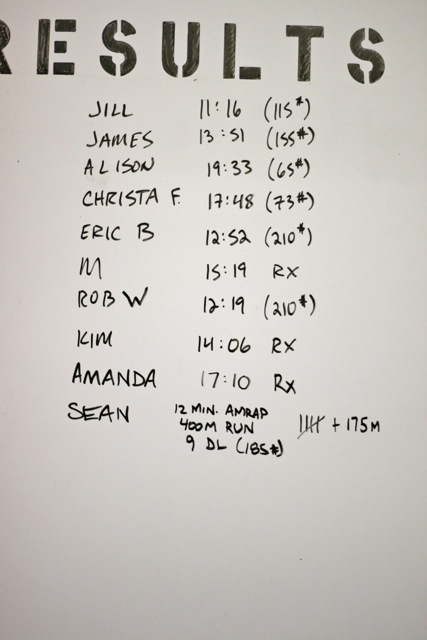 RESULTS
JILL 11:16 (115#)
JAMES 13:51 (155#)
ALISON 19:33 (65#)
CHRISTA F. 17:48 (73#)
ERIC B 12:52 (210#)
M 15:19 RX
ROB W 12:19 (210#)
KIM 14:06 RX
AMANDA 17:10 Rx
SEAN 12 MIN. AMRAP
400M RUN 𝍸 + 175M
9 DL (185#)